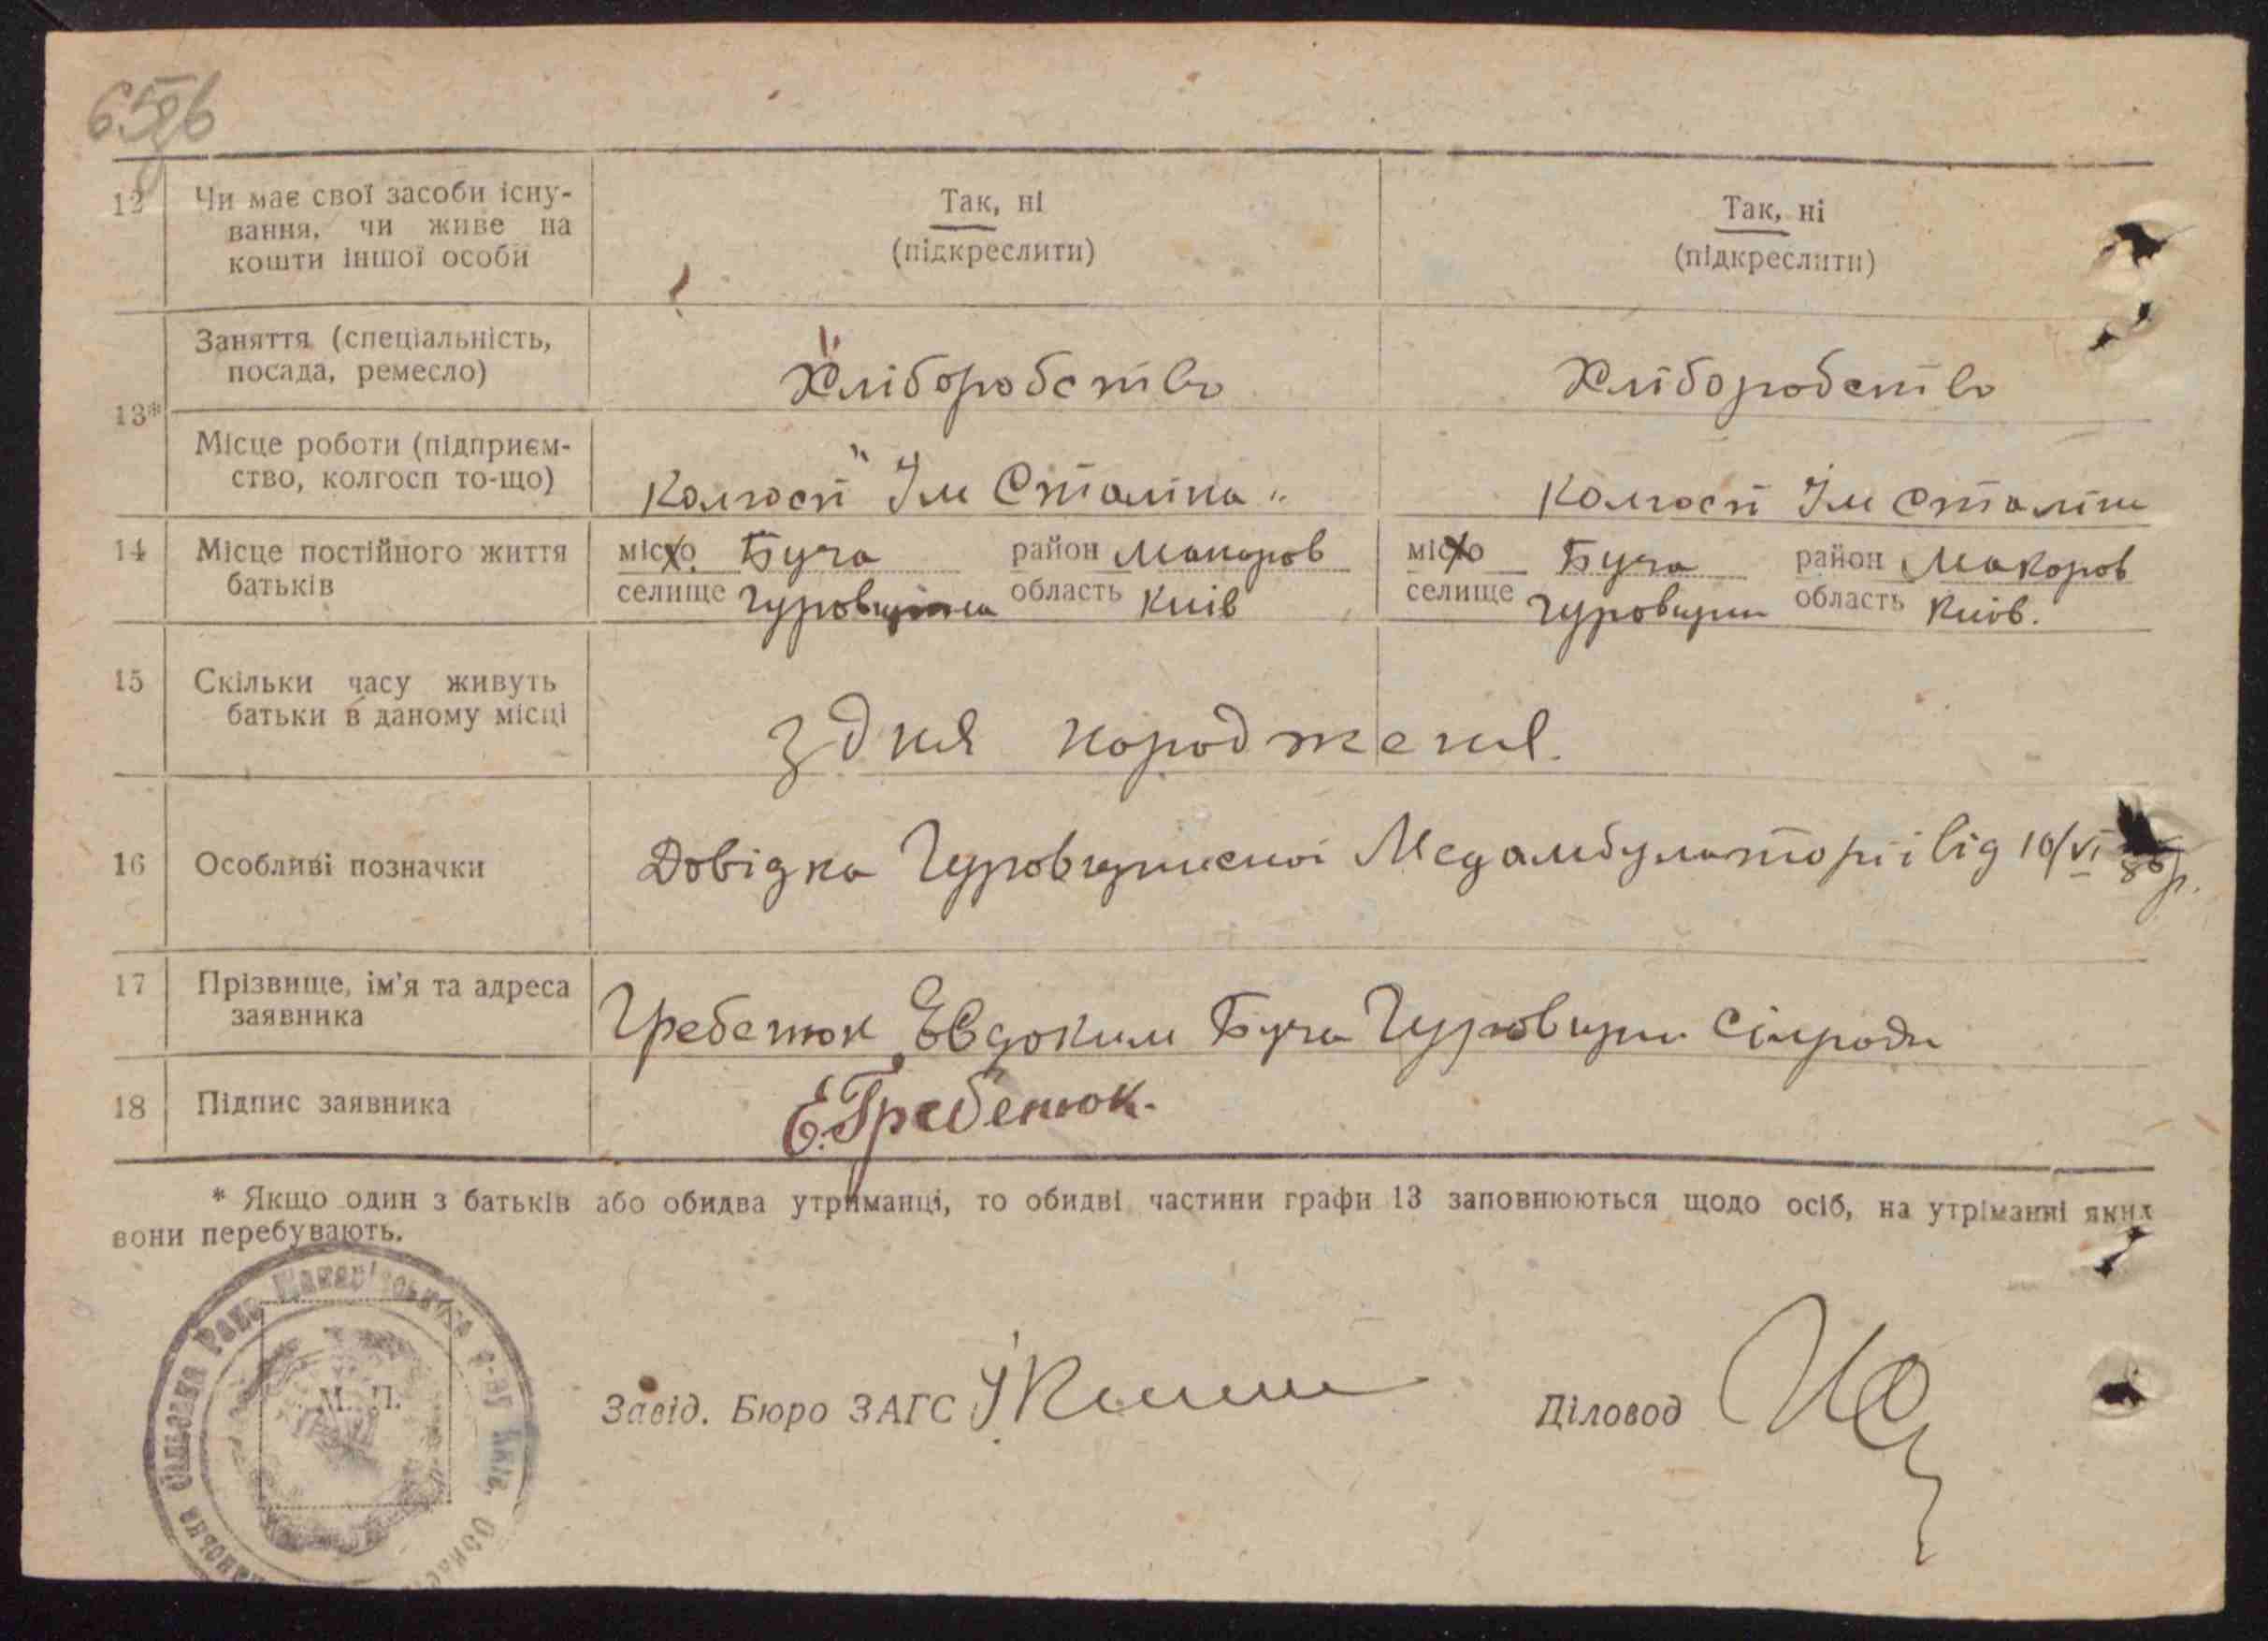 12 Чи має свої засоби існу- Так, ні Так, ні
вання, чи живе на (підкреслити) (підкреслити)
кошти іншої особи
13* Заняття (спеціальність, Хліборобство Хліборобство
посада, ремесло)
Місце роботи (підприєм- Колгосп "Ім Сталіна" Колгосп Ім Сталіна
ство, колгосп то-що)
14 Місце постійного життя місто Буча район Макаров місто Буча район Макоров
батьків селище область Київ селище область Київ.
15 Скільки часу живуть
батьки в даному місці
з дня породженя.
16 Особливі позначки Довідка Медамбулаторії від 16/VI
17 Прізвище, ім'я та адреса
заявника
Гребенюк Евдоким Буча Гуровщин Сілради
18 Підпис заявника Е.Гребенюк.
* Якщо один з батьків або обидва утриманці, то обидві частини графи 13 заповнюються щодо осіб, на утріманні яких
вони перебувають.
Сільська Рада Макарівського р-ну Київ. Област
М. П.
Завід. Бюро ЗАГС Діловод